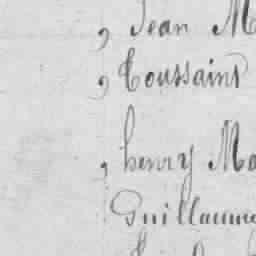 , Jean M
, Toussaint
, henry Ma
Guillaume